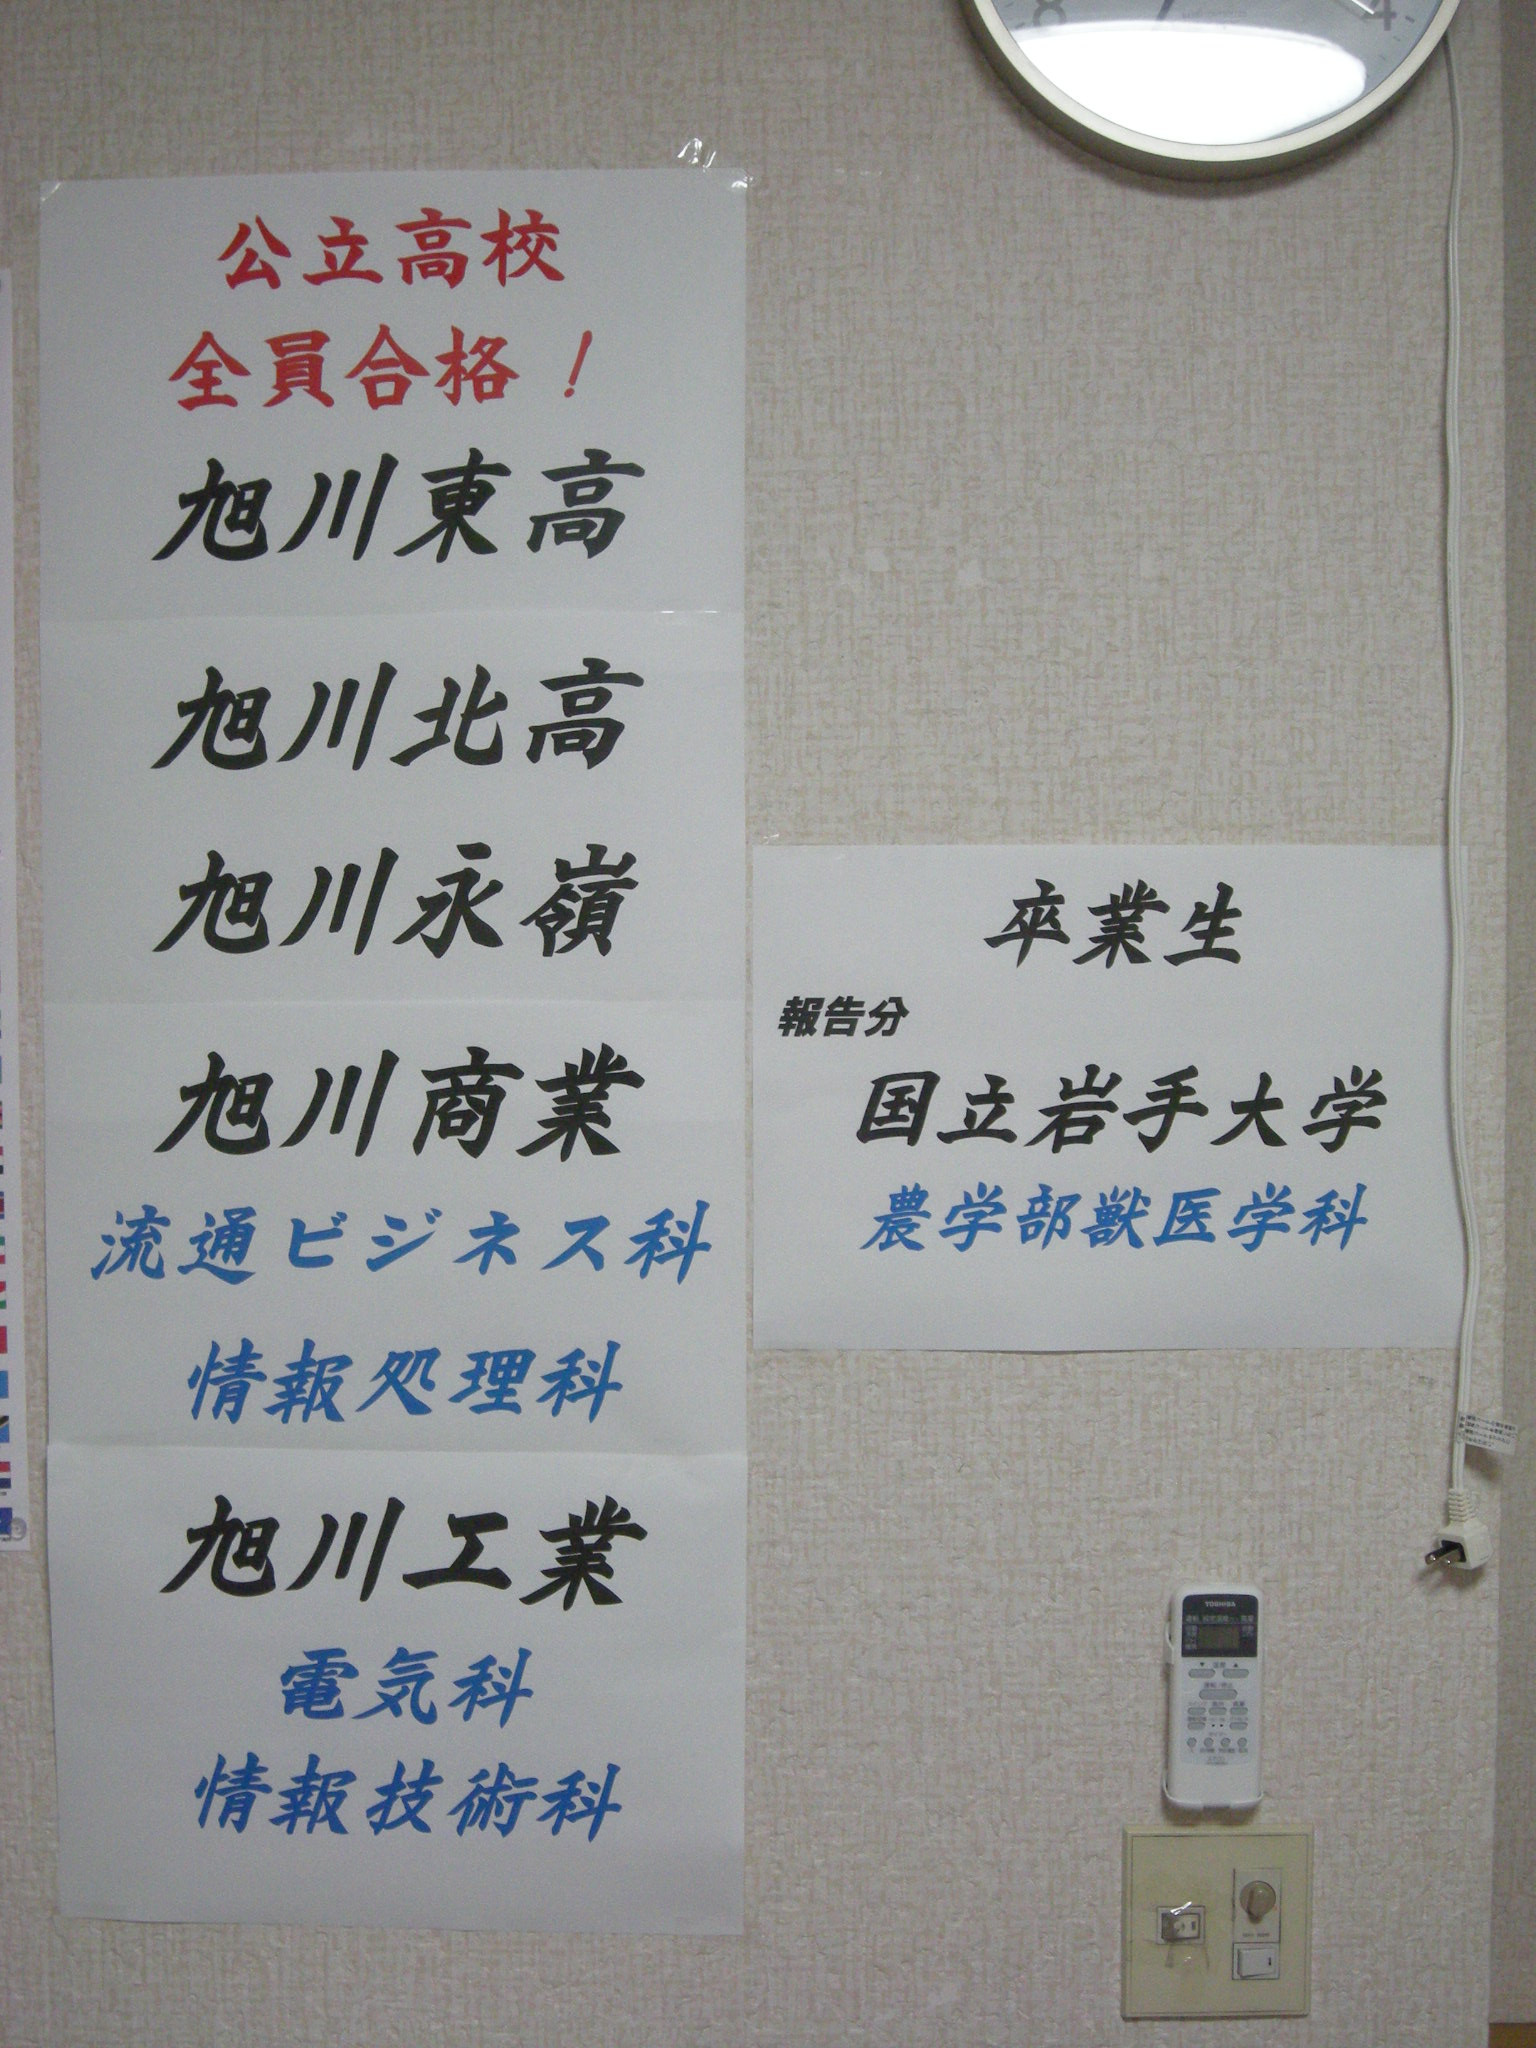 公立高校
全員合格！
旭川東高
旭川北高
旭川永嶺
旭川商業
流通ビジネス科
情報処理科
旭川工業
電気科
情報技術科
卒業生
報告分
国立岩手大学
農学部獣医学科
8
7
4
TOSHIBA